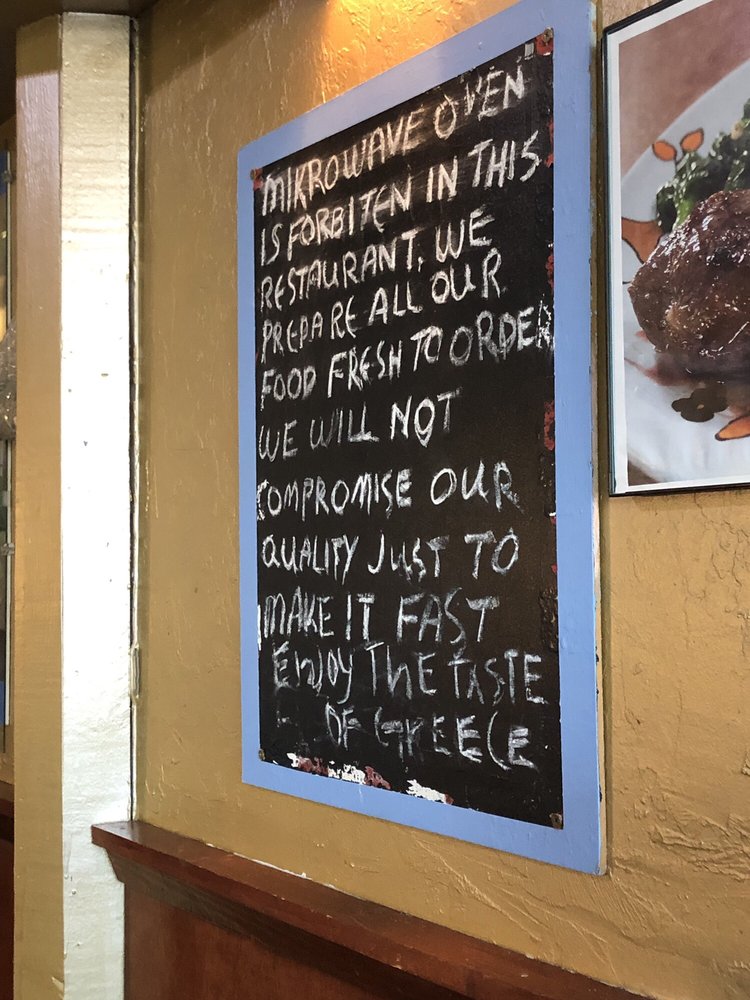 MIKROWAVE OVEN
IS FORBITEN IN THIS
RESTAURANT. WE
PREPARE ALL OUR
FOOD FRESH TO ORDER
WE WILL NOT
COMPROMISE OUR
QUALITY JUST TO
MAKE IT FAST
ENJOY THE TASTE
OF GREECE